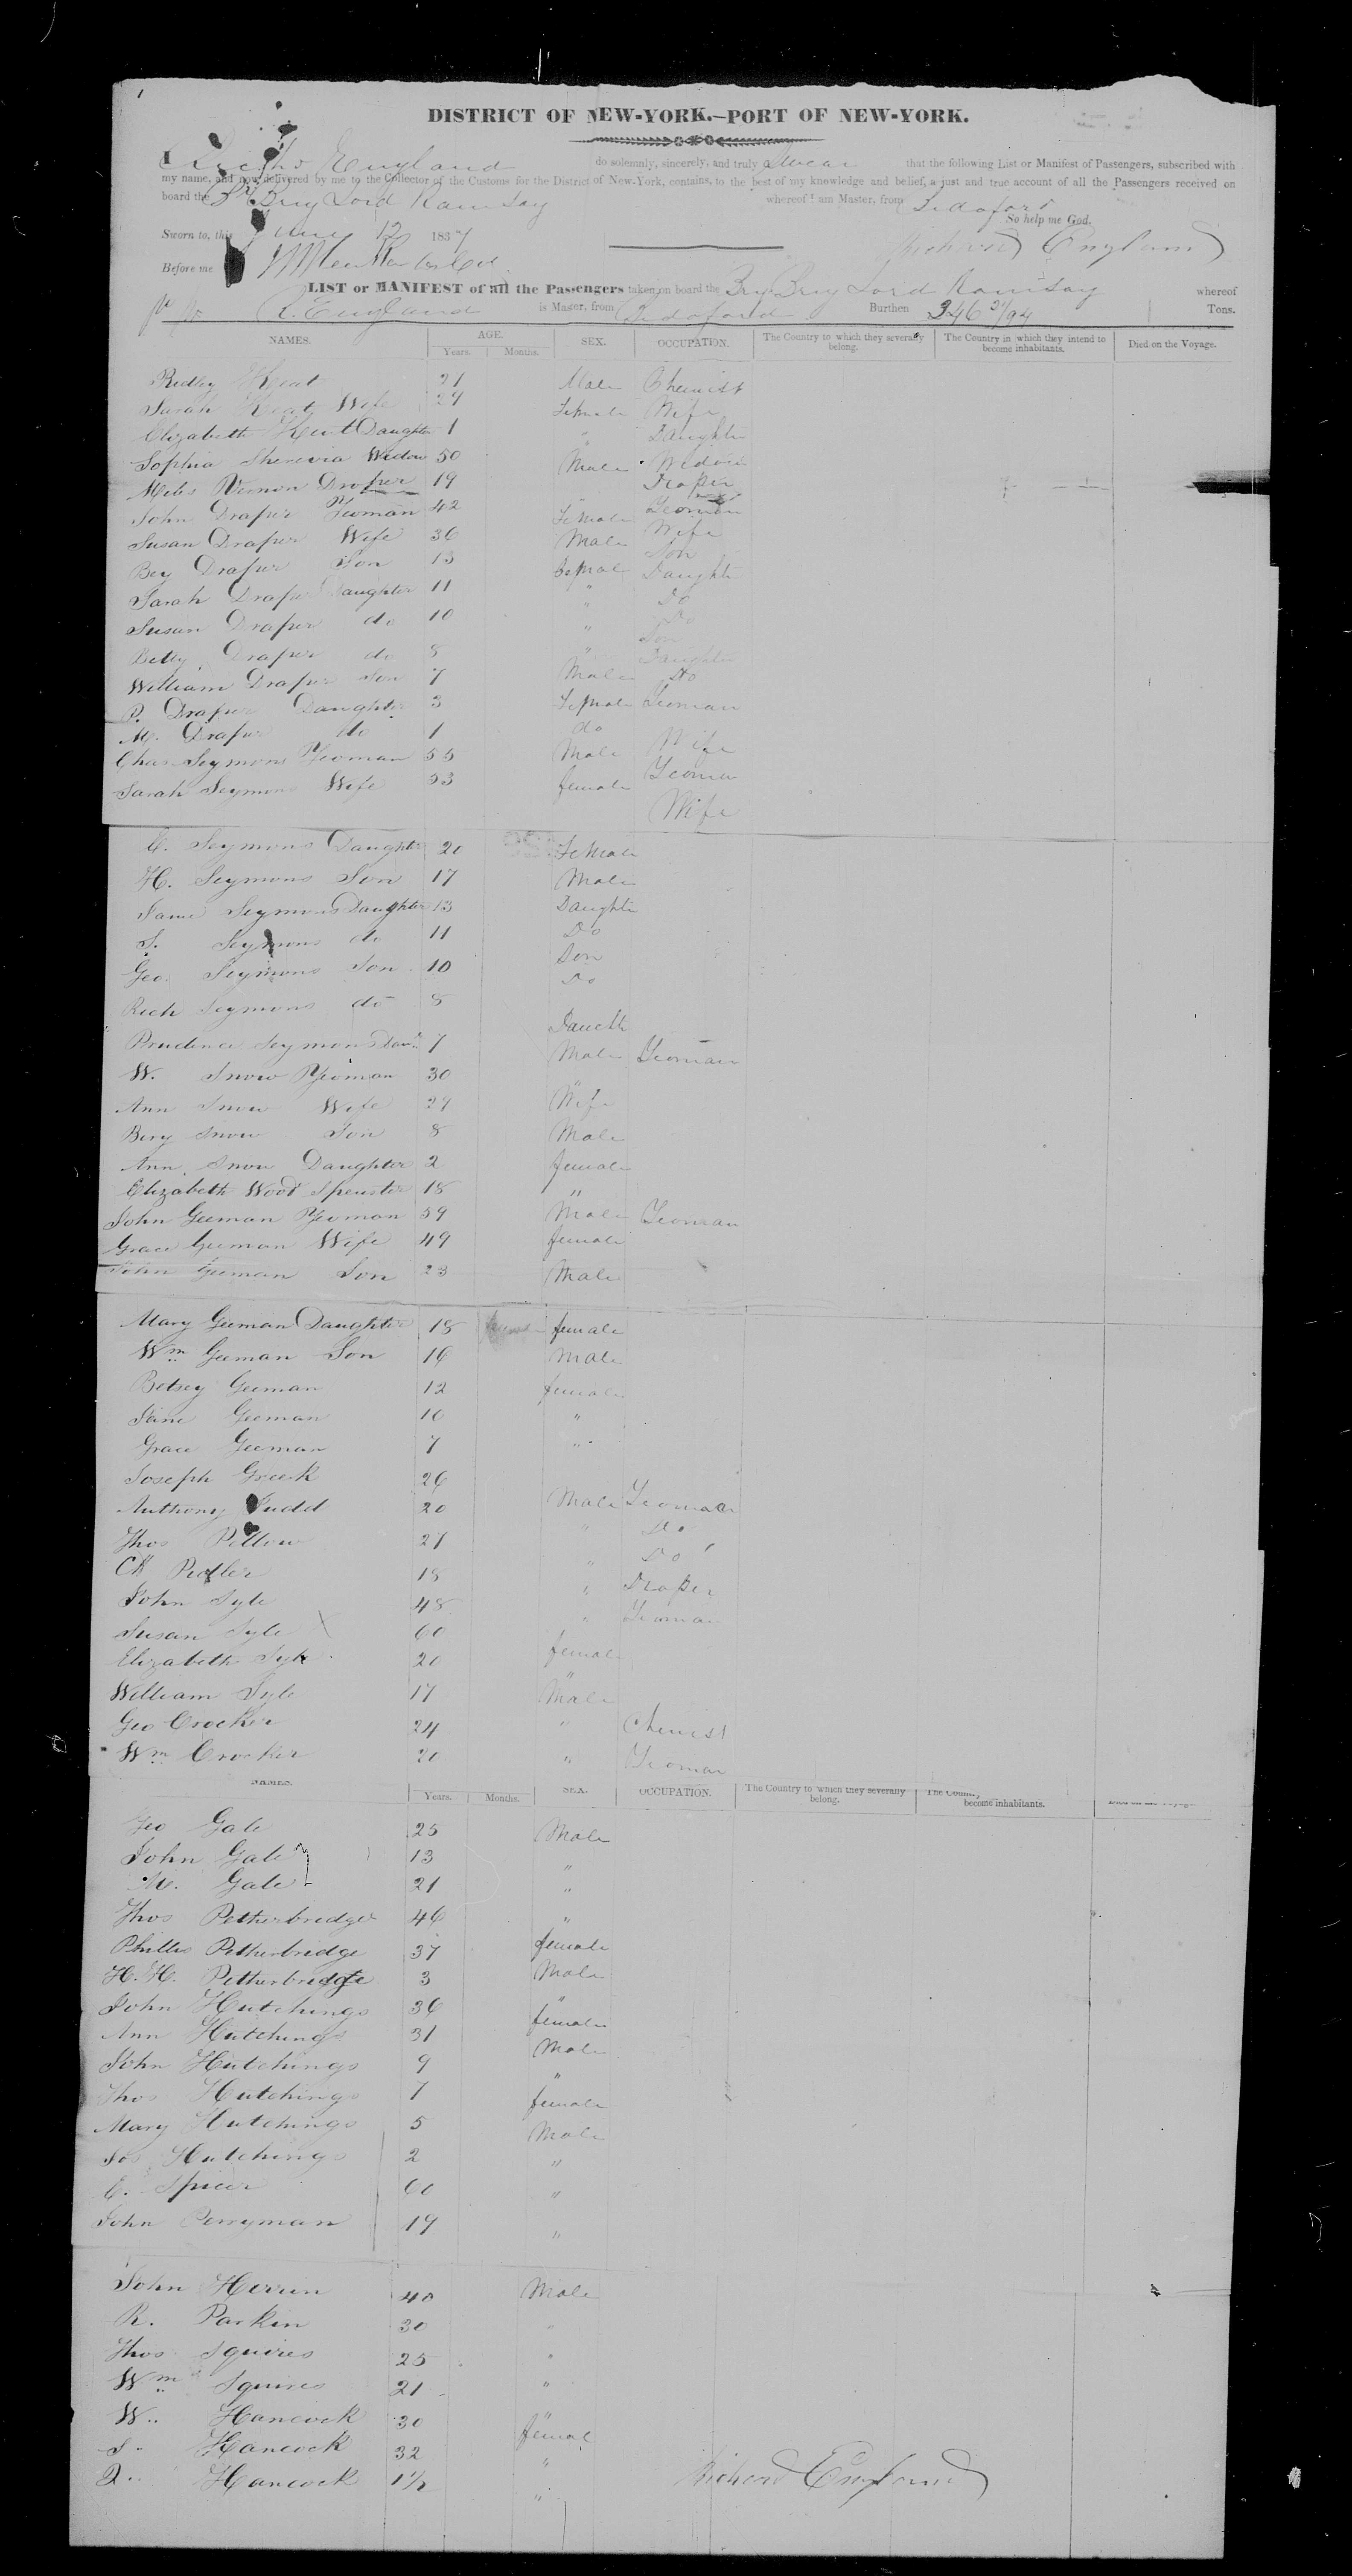 DISTRICT OF NEW-YORK.—PORT OF NEW-YORK.
I Richd England do solemnly, sincerely, and truly swear that the following List or Manifest of Passengers, subscribed with
my name, and now delivered by me to the Collector of the Customs for the District of New-York, contains, to the best of my knowledge and belief, a just and true account of all the Passengers received on
board the Br Brig Lord Ramsay whereof I am Master, from Bidoford
So help me God.
Sworn to, this June 12 1837
Richard England
Before me
LIST or MANIFEST of all the Passengers taken on board the Brig Lord Ramsay whereof
R. England is Master, from Bidoford Burthen 346 31/94 Tons.
NAMES. AGE. Years. Months. SEX. OCCUPATION. The Country to which they severally belong. The Country in which they intend to become inhabitants. Died on the Voyage.
Ridley Keat 21 Male Chemist
Sarah Keat Wife 29 Female Wife
Elizabeth Keat Daughter 1 " Daughter
Sophia Widow 50 Male Widow
Vernon Draper 19 Draper
John Draper Yeoman 42 Yeoman
Susan Draper Wife 36 Female Wife
Ben Draper Son 13 Male Son
Sarah Draper Daughter 11 Female Daughter
Susan Draper do 10 " Do
Betty Draper do 8 " Do
William Draper Son 7 Male Son
P. Draper Daughter 3 Female Daughter
M. Draper do 1 do Do
Chas Seymons Yeoman 55 Male Yeoman
Sarah Seymons Wife 53 female Wife
Yeoman
Wife
C. Seymons Daughter 20 Female
H. Seymons Son 17 Male
Jane Seymons Daughter 13 Daughter
S. Seymons do 11 Do
Geo. Seymons Son 10 Son
Rich Seymons do 8 Do
Prudence Seymons Daur 7 Daughtr
W. Snow Yeoman 30 Male Yeoman
Ann Snow Wife 29 Wife
Benj Snow Son 8 Male
Ann Snow Daughter 2 female
Elizabeth Wood Spenster 18 "
John Geeman Yeoman 59 Male Yeoman
Grace Geeman Wife 49 female
John Geeman Son 23 Male
Mary Geeman Daughter 18 female
Wm Geeman Son 16 Male
Betsey Geeman 12 female
Jane Geeman 10 "
Grace Geeman 7 "
Joseph Greek 26 Male Yeoman
Anthony Judd 20 " Do
Thos Pellow 27 " Do
Ch Pedler 18 " Draper
John Syle 48 " Yeoman
Susan Syle 60 female
Elizabeth Syle 20 "
William Syle 17 Male
Geo Crocker 24 " Chemist
Wm Crocker 20 " Yeoman
NAMES. Years. Months. SEX. OCCUPATION. The Country to which they severally belong. The Country become inhabitants.
Geo Gale 25 Male
John Gale 13 "
M. Gale 21 "
Thos Petherbridge 46 "
Phillis Petherbridge 37 female
H. H. Petherbridge 3 Male
John Hutchings 36 "
Ann Hutchings 31 female
John Hutchings 9 Male
Thos Hutchings 7 "
Mary Hutchings 5 female
Jos Hutchings 2 Male
C. Spicer 60 "
John Perryman 19 "
"
John Herrin 40 Male
R. Parkin 30 "
Thos Squires 25 "
Wm Squires 21 "
W. Hancock 30 "
S. Hancock 32 female
Hancock 1½ "
"
Richard England